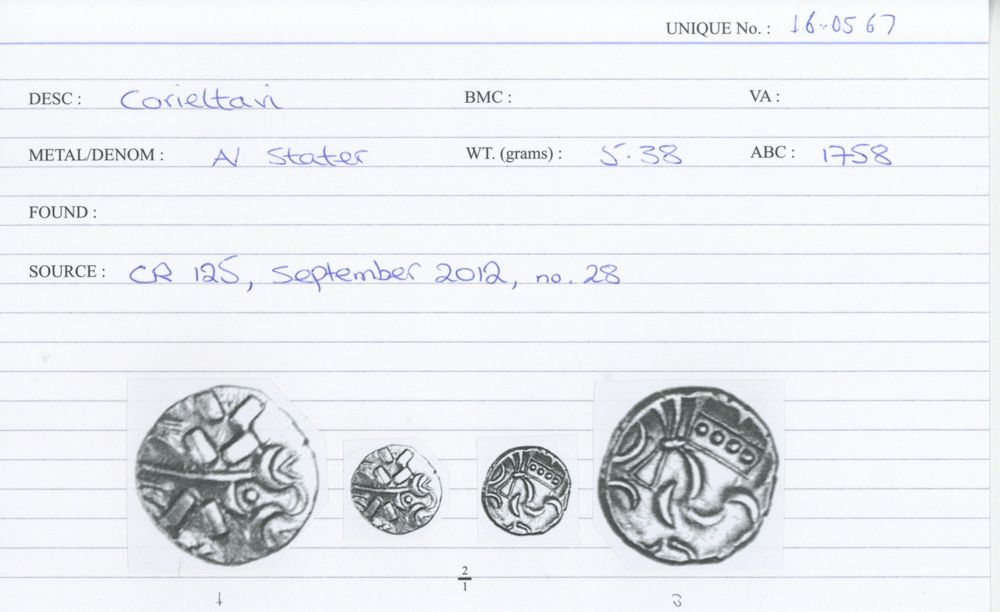 UNIQUE No. : 16-0567
DESC : Corieltavi BMC : VA :
METAL/DENOM : AV Stater WT. (grams) : 5.38 ABC : 1758
FOUND :
SOURCE : CR 125, September 2012, no. 28
2
1
1 3